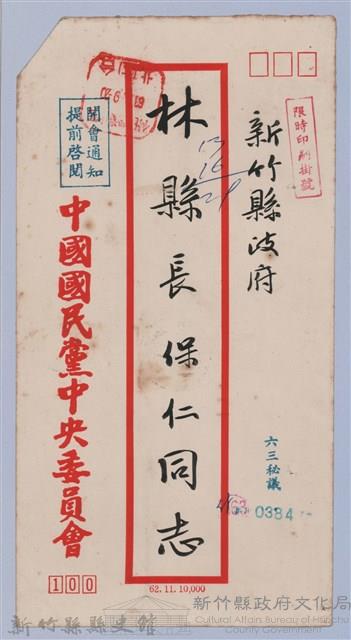 限時印刷掛號
新竹縣政府
六三秘議
0384
林縣長保仁同志
13
16
62. 11. 10,000
開會通知
提前啓閱
中國國民黨中央委員會
100
新竹縣政府文化局
Cultural Affairs Bureau of Hsinchu County Government
新竹縣縣史館